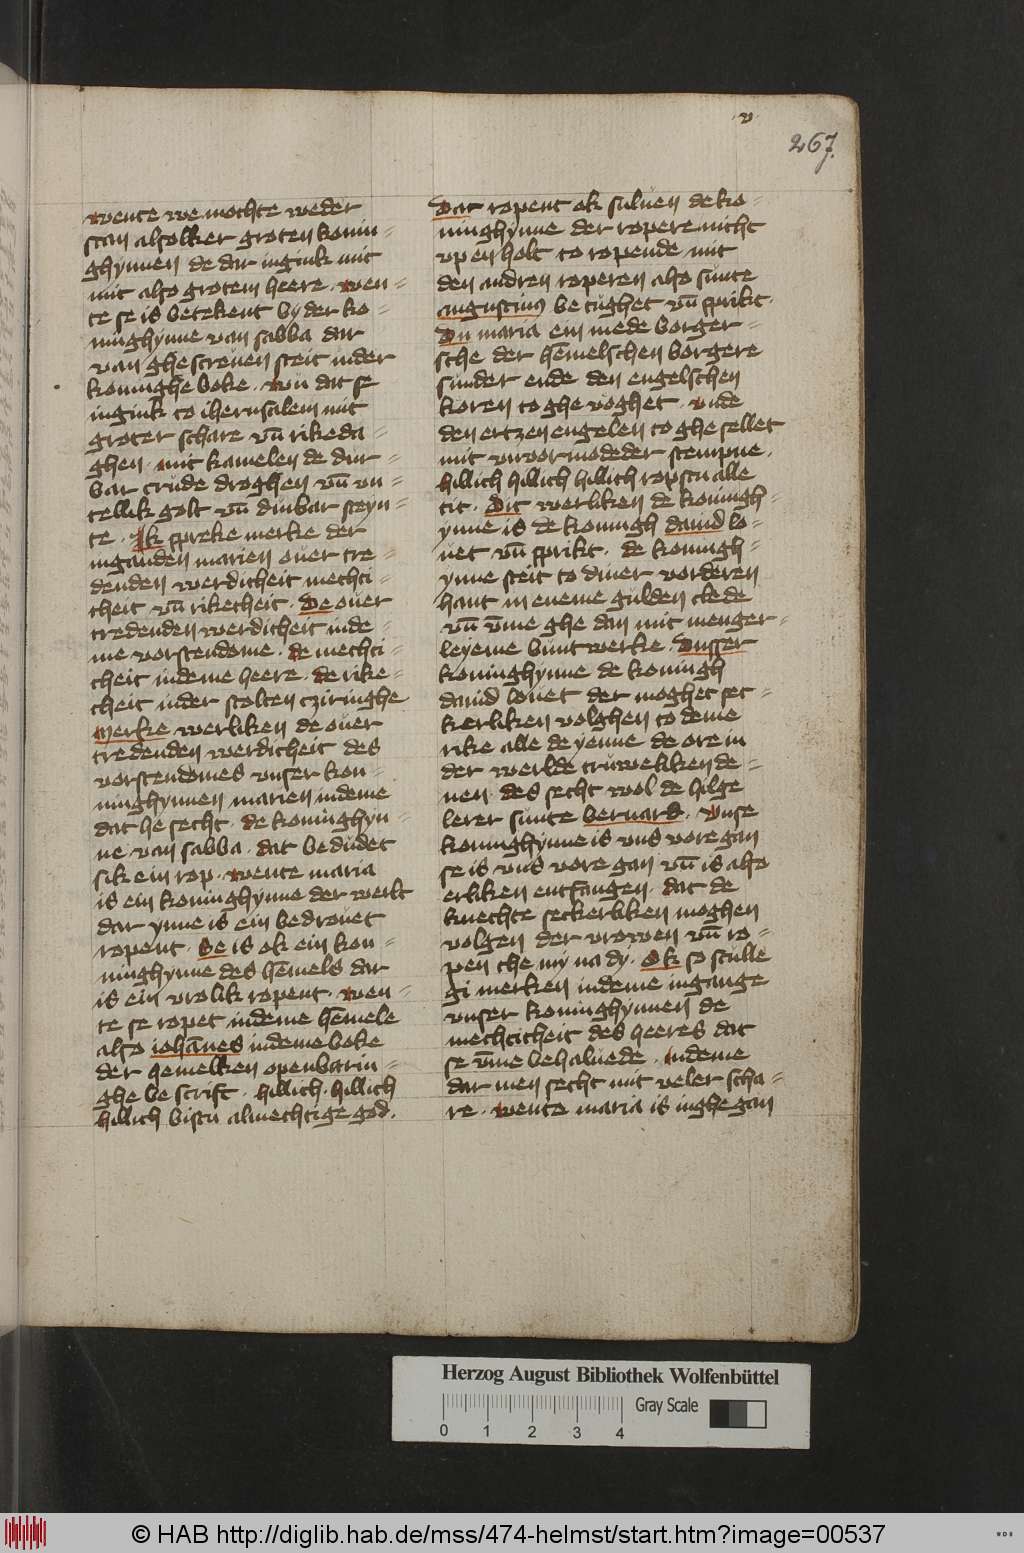 v
267.
wente we mochte weder
stan alsolker groten konin=
ghynnen de dar ingink mit
mit also grotem heere. wen=
te se is betekent by der ko=
ninghynne van sabba dar
van ghescreuen steit in der
koninghe boke. wu dat se
ingink to iherusalem mit
groter schare vn̄ rikeda=
ghen. mit kamelen de dur=
bar crude droghen vn̄ vn=
tellik golt vn̄ durbar steyn=
te. Ik spreke merke der
inganden marien ouer tre=
denden werdicheit mechti=
cheit vn̄ rikecheit. De ouer
tredenden werdicheit inde=
me vorstendome. de mechti=
cheit indeme heere. de rike=
cheit inder stolten cziringhe
Merke werliken de ouer
tredenden werdicheit des
vorstendomes vnser kon=
ninghynnen marien indeme
dat he secht. de koninghyn=
ne van sabba. dat bedudet
sik ein rop. wente maria
is ein koninghynne der werlt
dar ynne is ein bedrouet
ropent. Se is ok ein kon=
ninghynne des hēmels dar
is ein vrolik ropent. wen=
te se ropet indeme hēmele
also iohānes indeme boke
der hemelken openbarin=
ghe bescrift. hillich. hillich
hillich bistu almechtige god.
Dat ropent ok suluen de ko=
ninghynne der ropere nicht
vp en holt to ropende mit
den andren roperen also sunte
augustinus be tughet vn̄ sprikt.
Du maria ein mede borger=
sche der hēmelschen borgere
sunder ende den engelschen
koren to ghe voghet. vnde
den ertzen engelen to ghe sellet
mit vnvormodeder stempne.
hillich hillich hillich ropstu alle
tit. Dit werliken de koningh=
ynne is de koningh dauid lo=
uet vn̄ sprikt. de koningh=
ynne steit to diner vorderen
hant in eneme gulden clede
vn̄ v̄me ghe dan mit menger=
leyeme buntwerke. Dusser
koninghynne de koningh
dauid louet der moghet sec=
kerliken volghen to deme
rike alle de yenne de ore in
der werlde truweliken de=
nen. des secht wol de hilge
lerer sunte bernard. Vnse
koninghynne is vns vore gan
se is vns vore gan vn̄ is also
erliken entfangen. dat de
knechte seckerliken moghen
volgen der vrowen vn̄ ro=
pen the my na dy. Ok so scülle
gi merken indeme ingange
vnser koninghynnen de
mechticheit des heeres dat
se v̄me behaluede. indeme
dar men secht mit veler scha=
re. wente maria is inghe gan
Herzog August Bibliothek Wolfenbüttel
Gray Scale
0 1 2 3 4
© HAB http://diglib.hab.de/mss/474-helmst/start.htm?image=00537